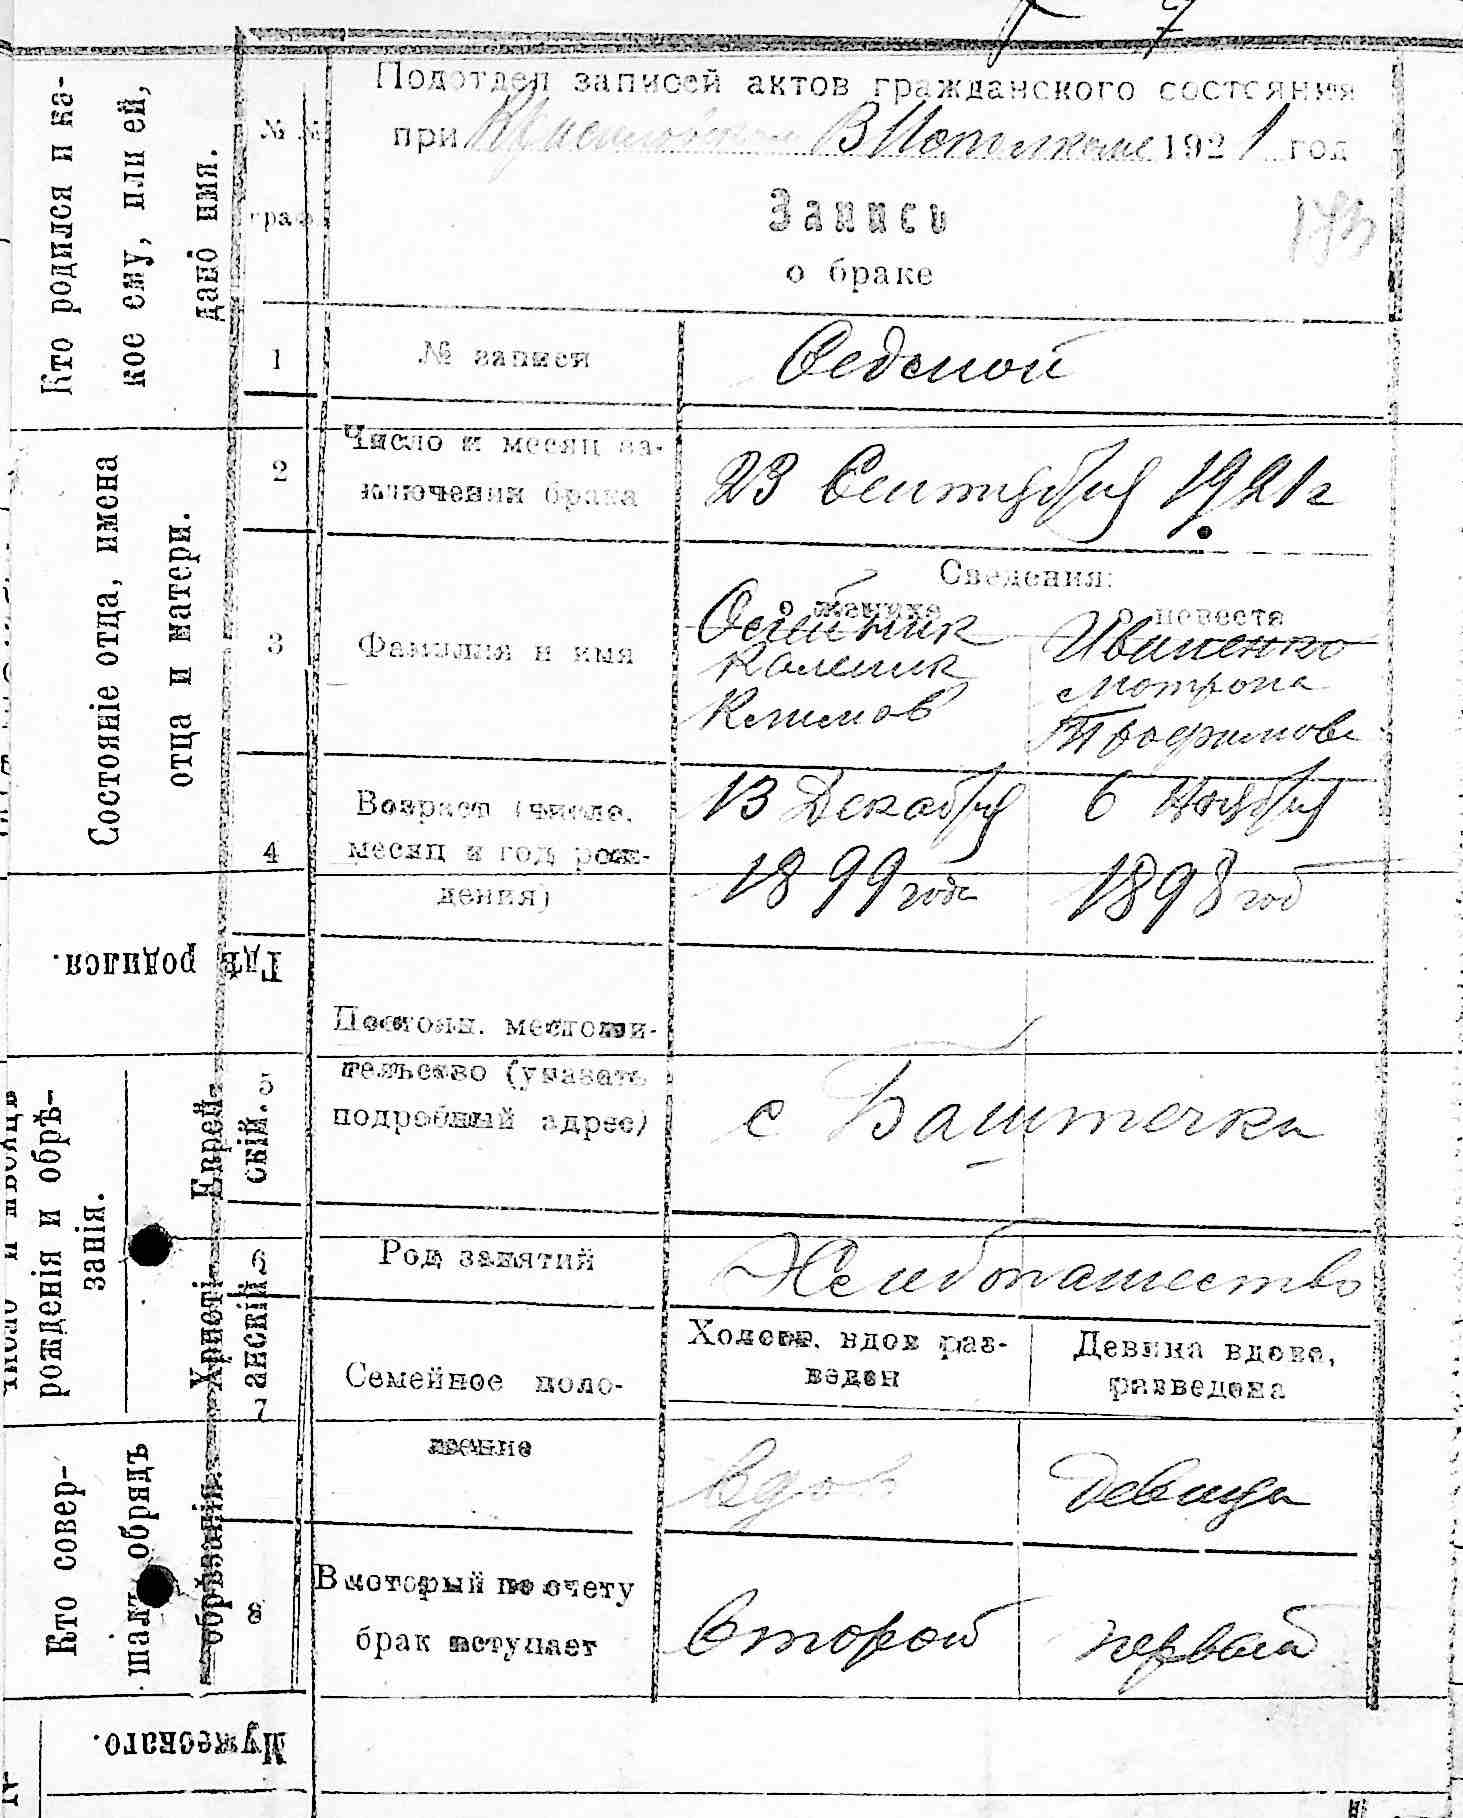 7
Подотдел записей актов гражданского состояния
при В Исполкоме 1921 год
№№ граф
Запись
о браке
1 № записи Седьмой
2 Число и месяц за-
ключения брака 23 Сентября 1921 г
Сведения:
о женихе о невесте
3 Фамилия и имя
Олейник Иваненко
Каленик Мотрона
Климов Трофимова
4 Возраст (число,
месяц и год рож-
дения)
13 Декабря 6 Ноября
1899 года 1898 год
5 Постоян. местожи-
тельство (указать
подробный адрес) с Баштечки
6 Род занятий Хлебопашество
7 Семейное поло-
жение
Холост, вдов раз-
веден
Девица вдова,
разведена
вдов девица
8 В который по счету
брак вступает второй первый
Кто родился и ка-
кое ему, или ей,
дано имя.
Состояніе отца, имена
отца и матери.
Гдѣ
родился.
рожденія и обрѣ-
занія.
Еврей-
скій.
Христі-
анскій
Кто совер-
шалъ обрядъ
обрѣзанія.
Мужескаго.